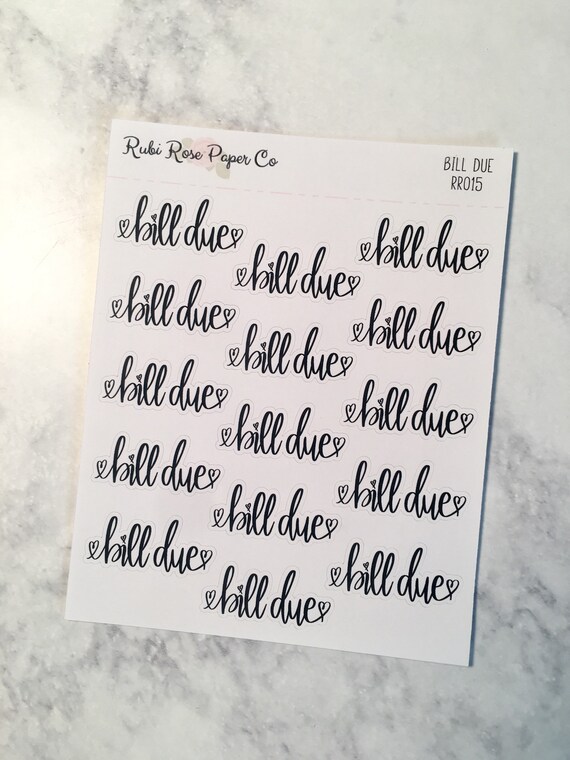 Rubi Rose Paper Co
BILL DUE
RR015
bill due
bill due
bill due
bill due
bill due
bill due
bill due
bill due
bill due
bill due
bill due
bill due
bill due
bill due
bill due